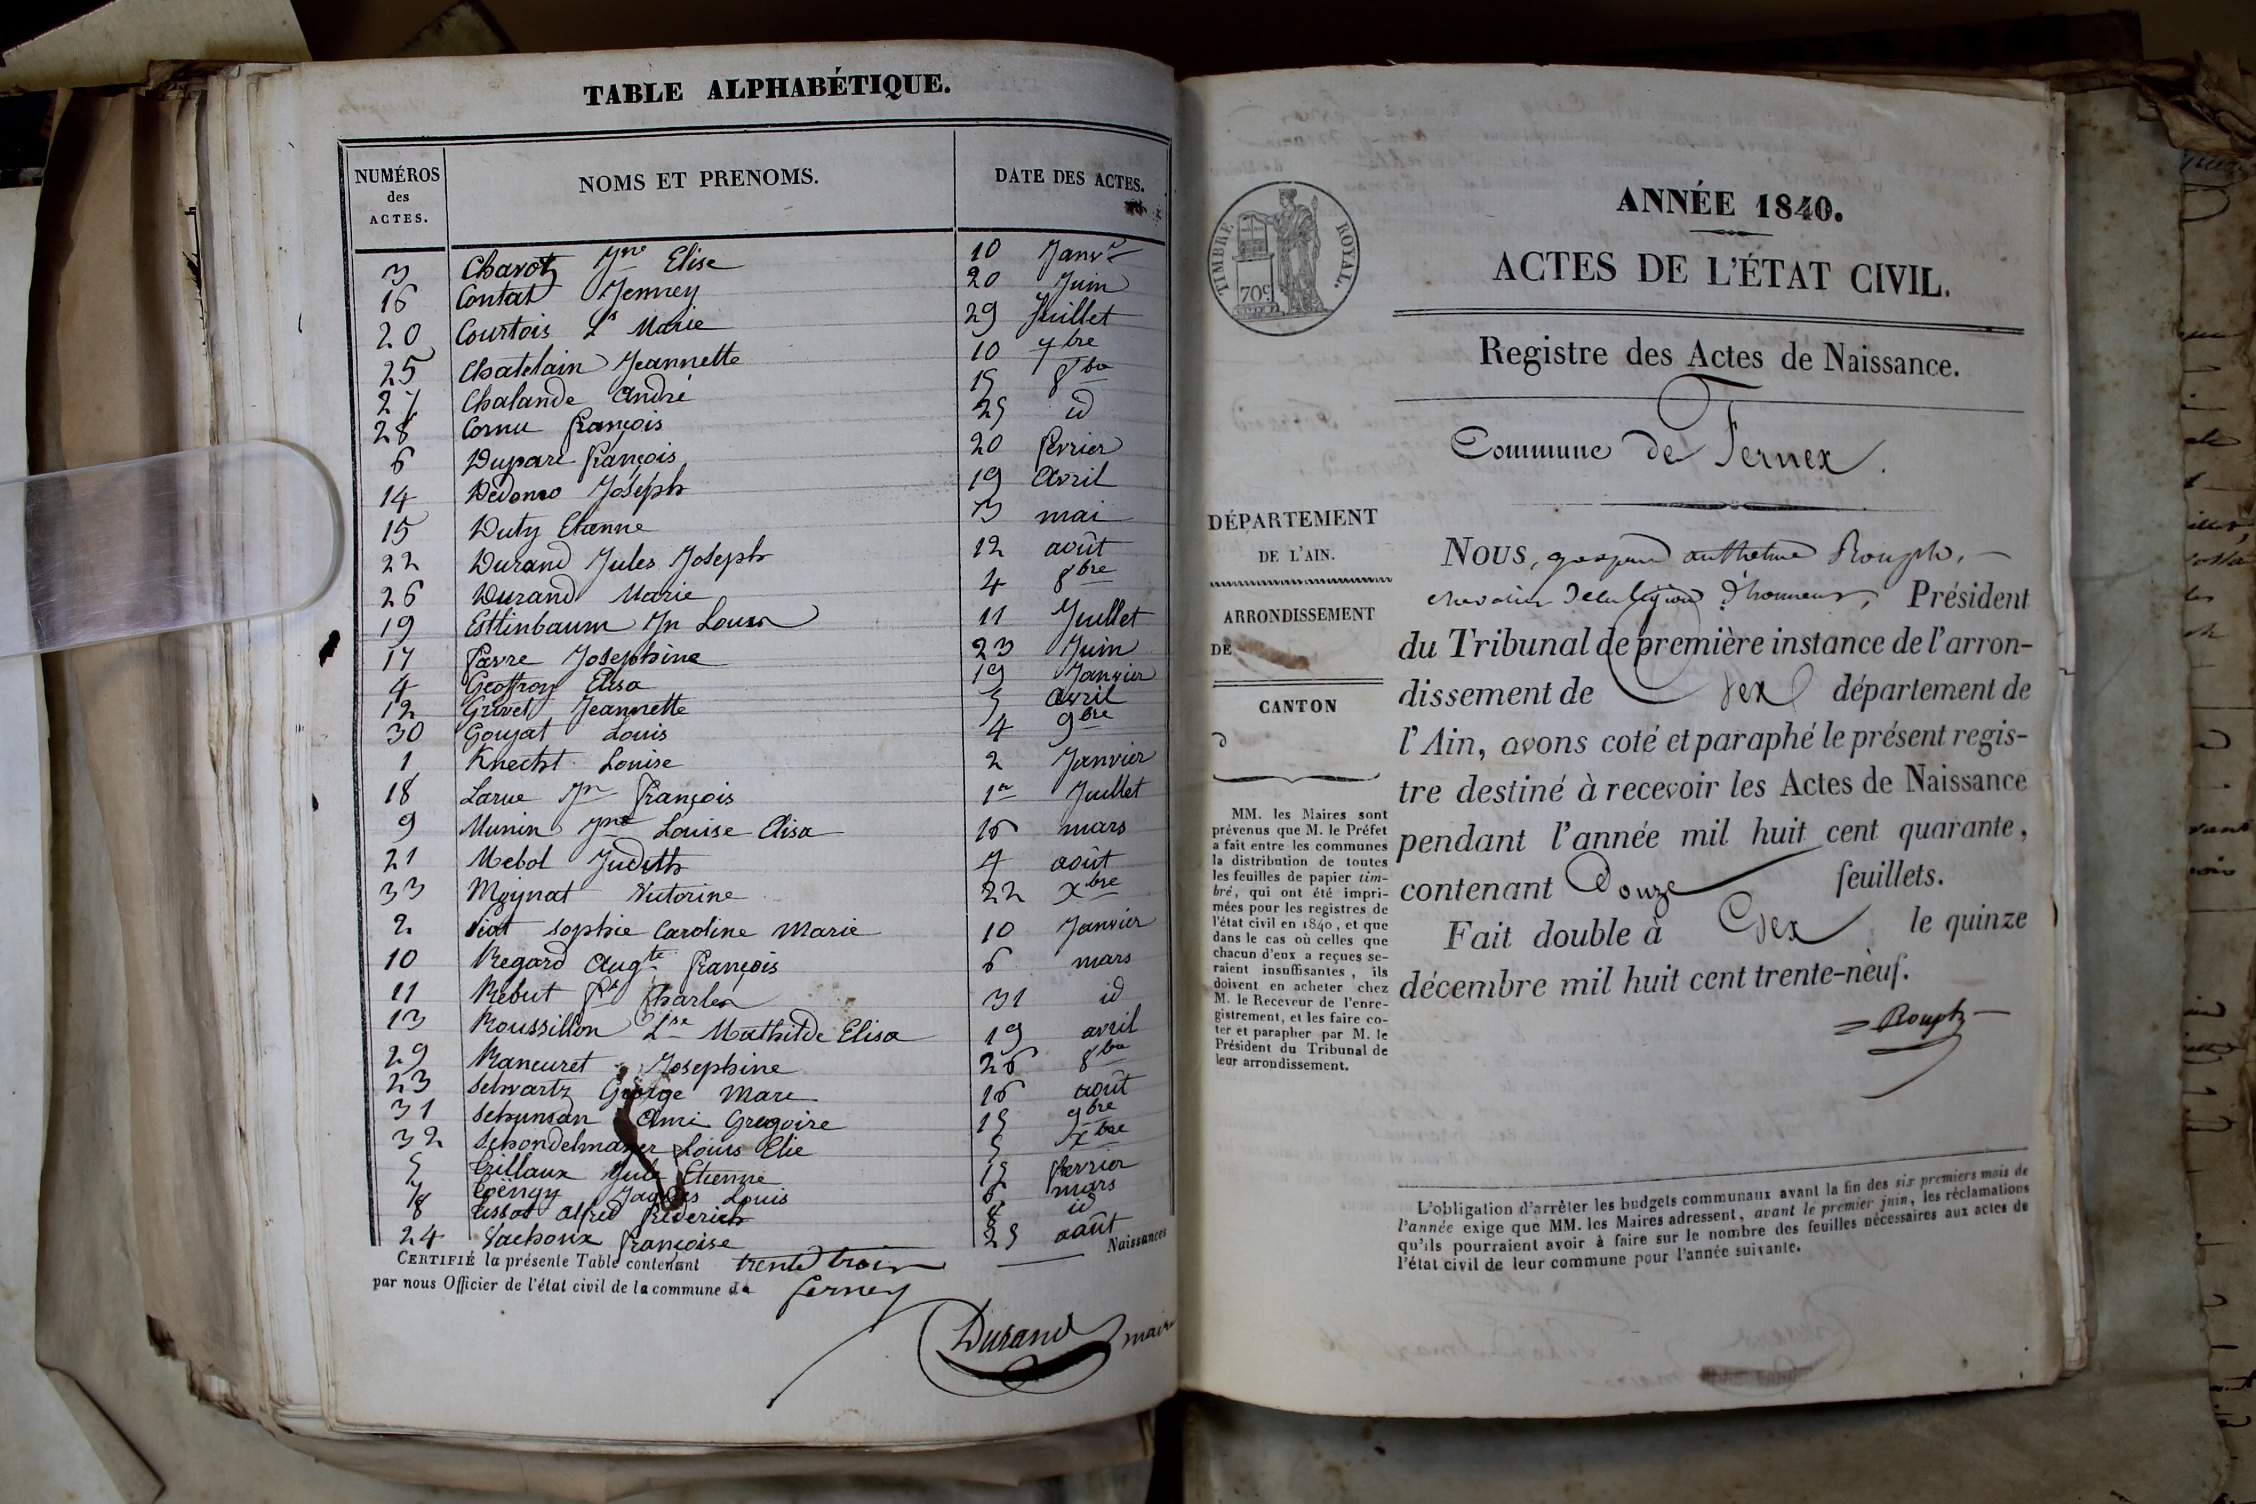 TABLE ALPHABÉTIQUE.
NUMÉROS des ACTES. NOMS ET PRENOMS. DATE DES ACTES.
3 Chavot Jne Elise 10 Janvr
16 Contat Jenney 20 Juin
20 Courtois Ls Marie 29 Juillet
25 Chatelain Jeannette 10 7bre
27 Chalande André 15 8bre
28 Cornu françois 25 id
6 Duparc françois 20 fevrier
14 Dedomo Joseph 19 Avril
15 Duty Etienne 3 mai
22 Durand Jules Joseph 12 août
26 Durand Marie 4 8bre
19 Estlinbaum Jn Louis 11 Juillet
17 favre Josephine 23 Juin
4 Geoffroy Elisa 19 Janvier
12 Grivet Jeannette 5 avril
30 Goujat Louis 4 9bre
1 Knecht Louise 2 Janvier
18 Larue Jn françois 1er Juillet
9 Munin Jne Louise Elisa 16 mars
21 Mebol Judith 7 août
33 Moynat Victorine 22 xbre
2 Piot Sophie Caroline Marie 10 Janvier
10 Regard Augte françois 6 mars
11 Rebut Charles 31 id
13 Roussillon Lse Mathilde Elisa 19 avril
29 Rancuret Josephine 26 8bre
23 Schvartz George Marc 16 août
31 Schuman Ami Gregoire 15 9bre
32 Schondelmayer Louis Elie 5 xbre
5 Trillaux Jule Etienne 15 fevrier
7 Jaques Louis 6 mars
8 Tissot Alfred frederich 8 id
24 Vachoux françoise 25 août
CERTIFIÉ la présente Table contenant trente trois Naissances
par nous Officier de l'état civil de la commune de ferney
Durand maire
TIMBRE ROYAL.
70c
ANNÉE 1840.
ACTES DE L'ÉTAT CIVIL.
Registre des Actes de Naissance.
Commune de Fernex.
DÉPARTEMENT
DE L'AIN.
ARRONDISSEMENT
DE
CANTON
D
MM. les Maires sont
prévenus que M. le Préfet
a fait entre les communes
la distribution de toutes
les feuilles de papier tim-
bré, qui ont été impri-
mées pour les registres de
l'état civil en 1840, et que
dans le cas où celles que
chacun d'eux a reçues se-
raient insuffisantes, ils
doivent en acheter chez
M. le Receveur de l'enre-
gistrement, et les faire co-
ter et parapher par M. le
Président du Tribunal de
leur arrondissement.
NOUS, gaspard anthelme Rouph,
chevalier de la légion d'honneur, Président
du Tribunal de première instance de l'arron-
dissement de Gex département de
l'Ain, avons coté et paraphé le présent regis-
tre destiné à recevoir les Actes de Naissance
pendant l'année mil huit cent quarante,
contenant Douze feuillets.
Fait double à Gex le quinze
décembre mil huit cent trente-neuf.
Rouph
L'obligation d'arrêter les budgets communaux avant la fin des six premiers mois de
l'année exige que MM. les Maires adressent, avant le premier juin, les réclamations
qu'ils pourraient avoir à faire sur le nombre des feuilles nécessaires aux actes de
l'état civil de leur commune pour l'année suivante.